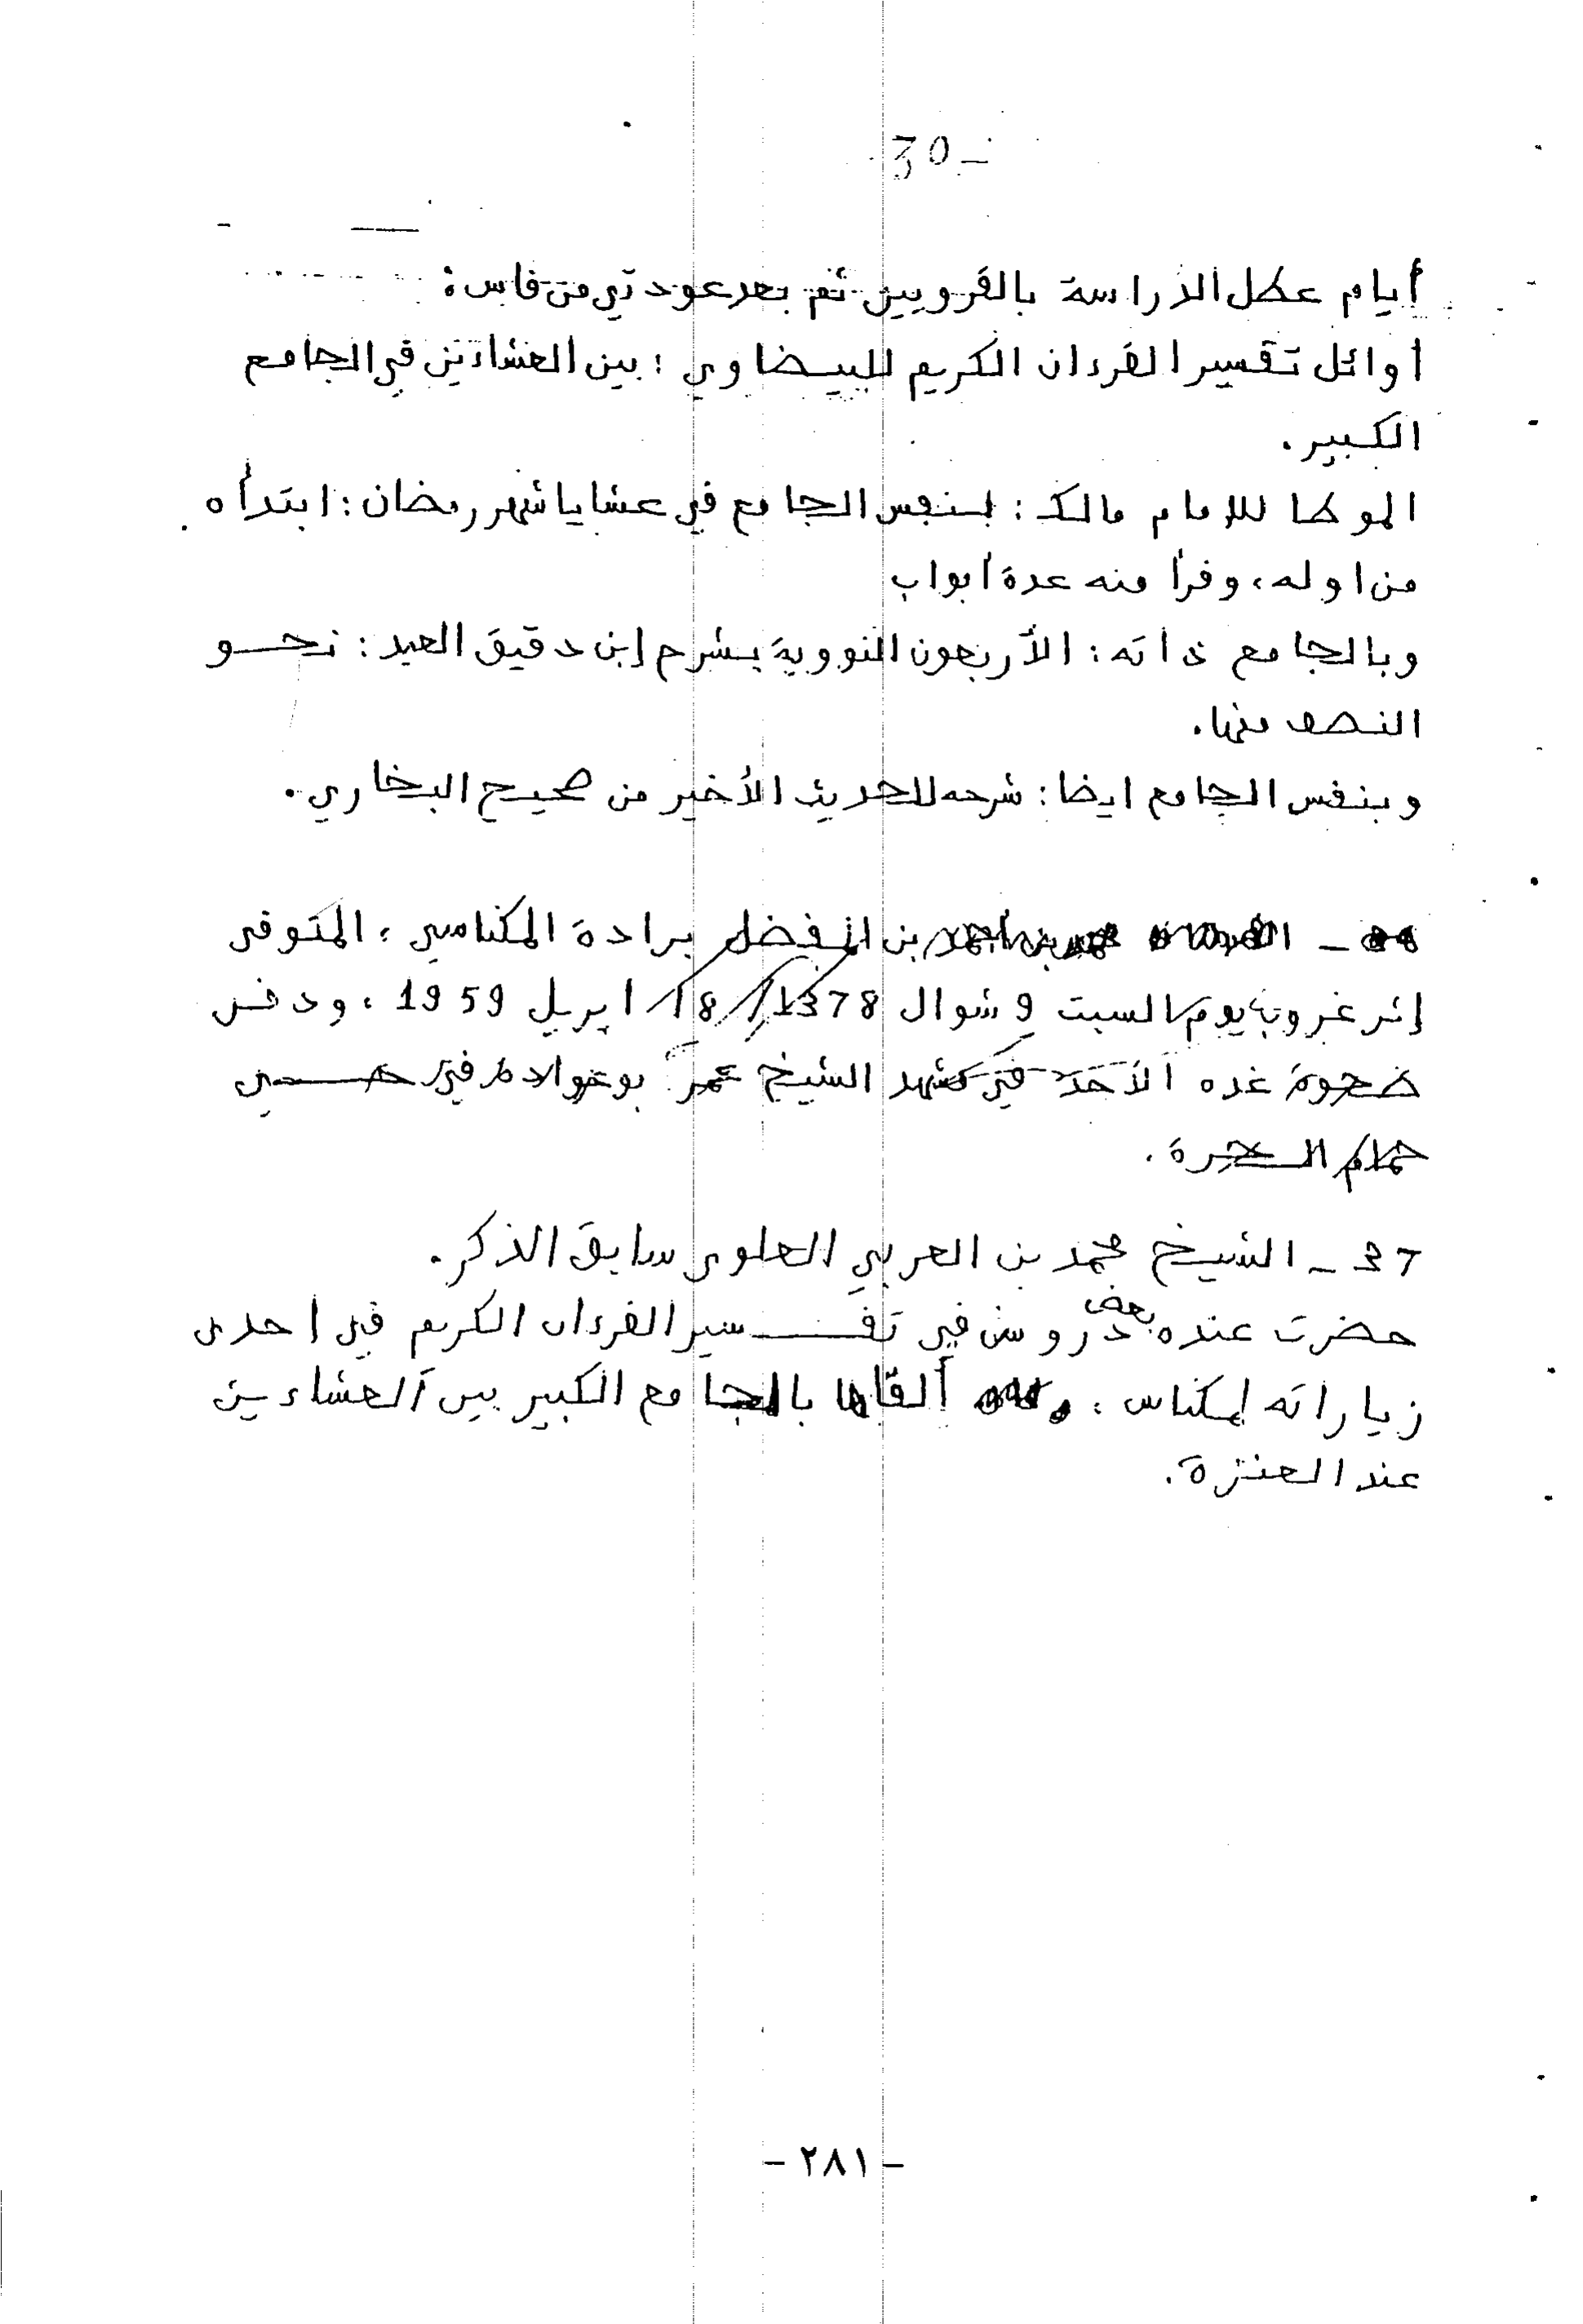 30 -
أيام عطل الدراسة بالقرويين ثم بعد عودتي من فاس:
أوائل تفسير القرءان الكريم للبيضاوي : بين العشاءين في الجامع
الكبير.
الموطا للإمام مالك : بنفس الجامع في عشايا شهر رمضان : ابتدأه
من اوله، وقرأ منه عدة أبواب
وبالجامع ذاته : الأربعون النووية بشرح إبن دقيق العيد : نحو
النصف منها.
وبنفس الجامع ايضا : شرحه للحديث الأخير من صحيح البخاري.
محمد بن احمد بن المفضل برادة المكناسي، المتوفى
إثر غروب يوم السبت 9 شوال 1378 / 18 ابريل 1959، ودفن
ضحوة غده الأحد في مشهد الشيخ عمر بوعوادة في حسي
حمام
37 - الشيخ محمد بن العربي العلوي سابق الذكر.
حضرت عنده بعض دروس في تفسير القرءان الكريم في احدى
زياراته لمكناس، ألقاها بالجامع الكبير بين العشاءين
عند العنزة.
- ٢٨١ -